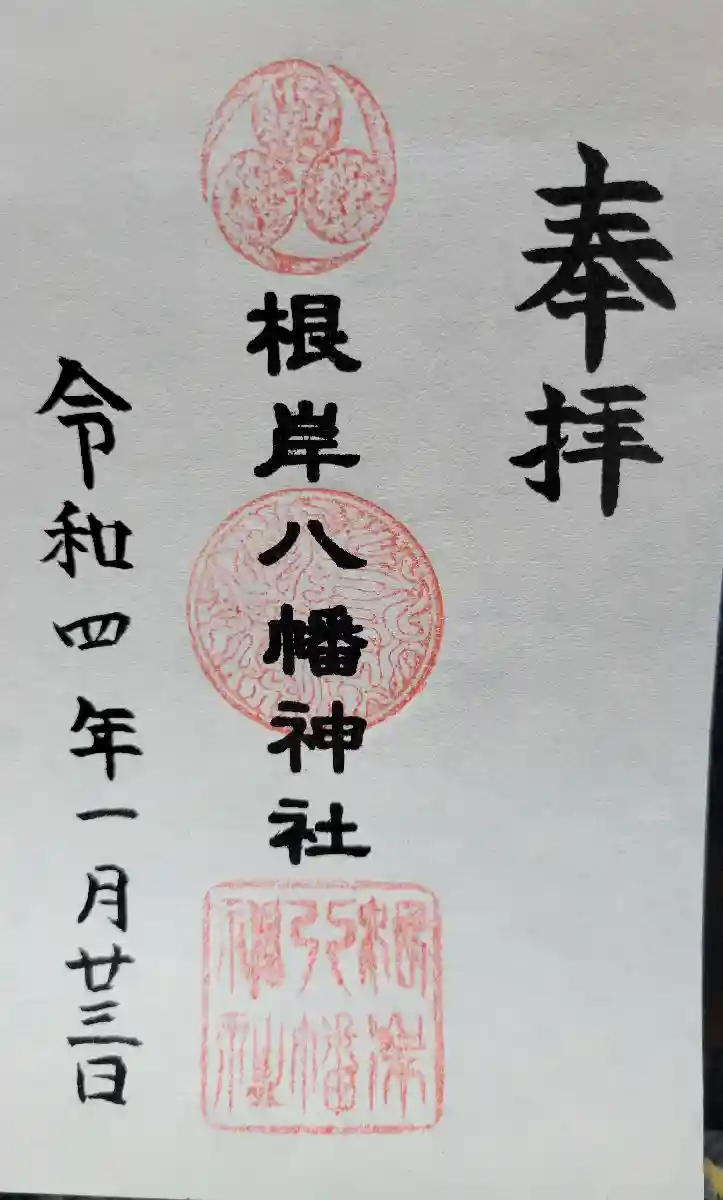 奉拝
根岸八幡神社
令和四年一月廿三日
根岸
八幡
神社